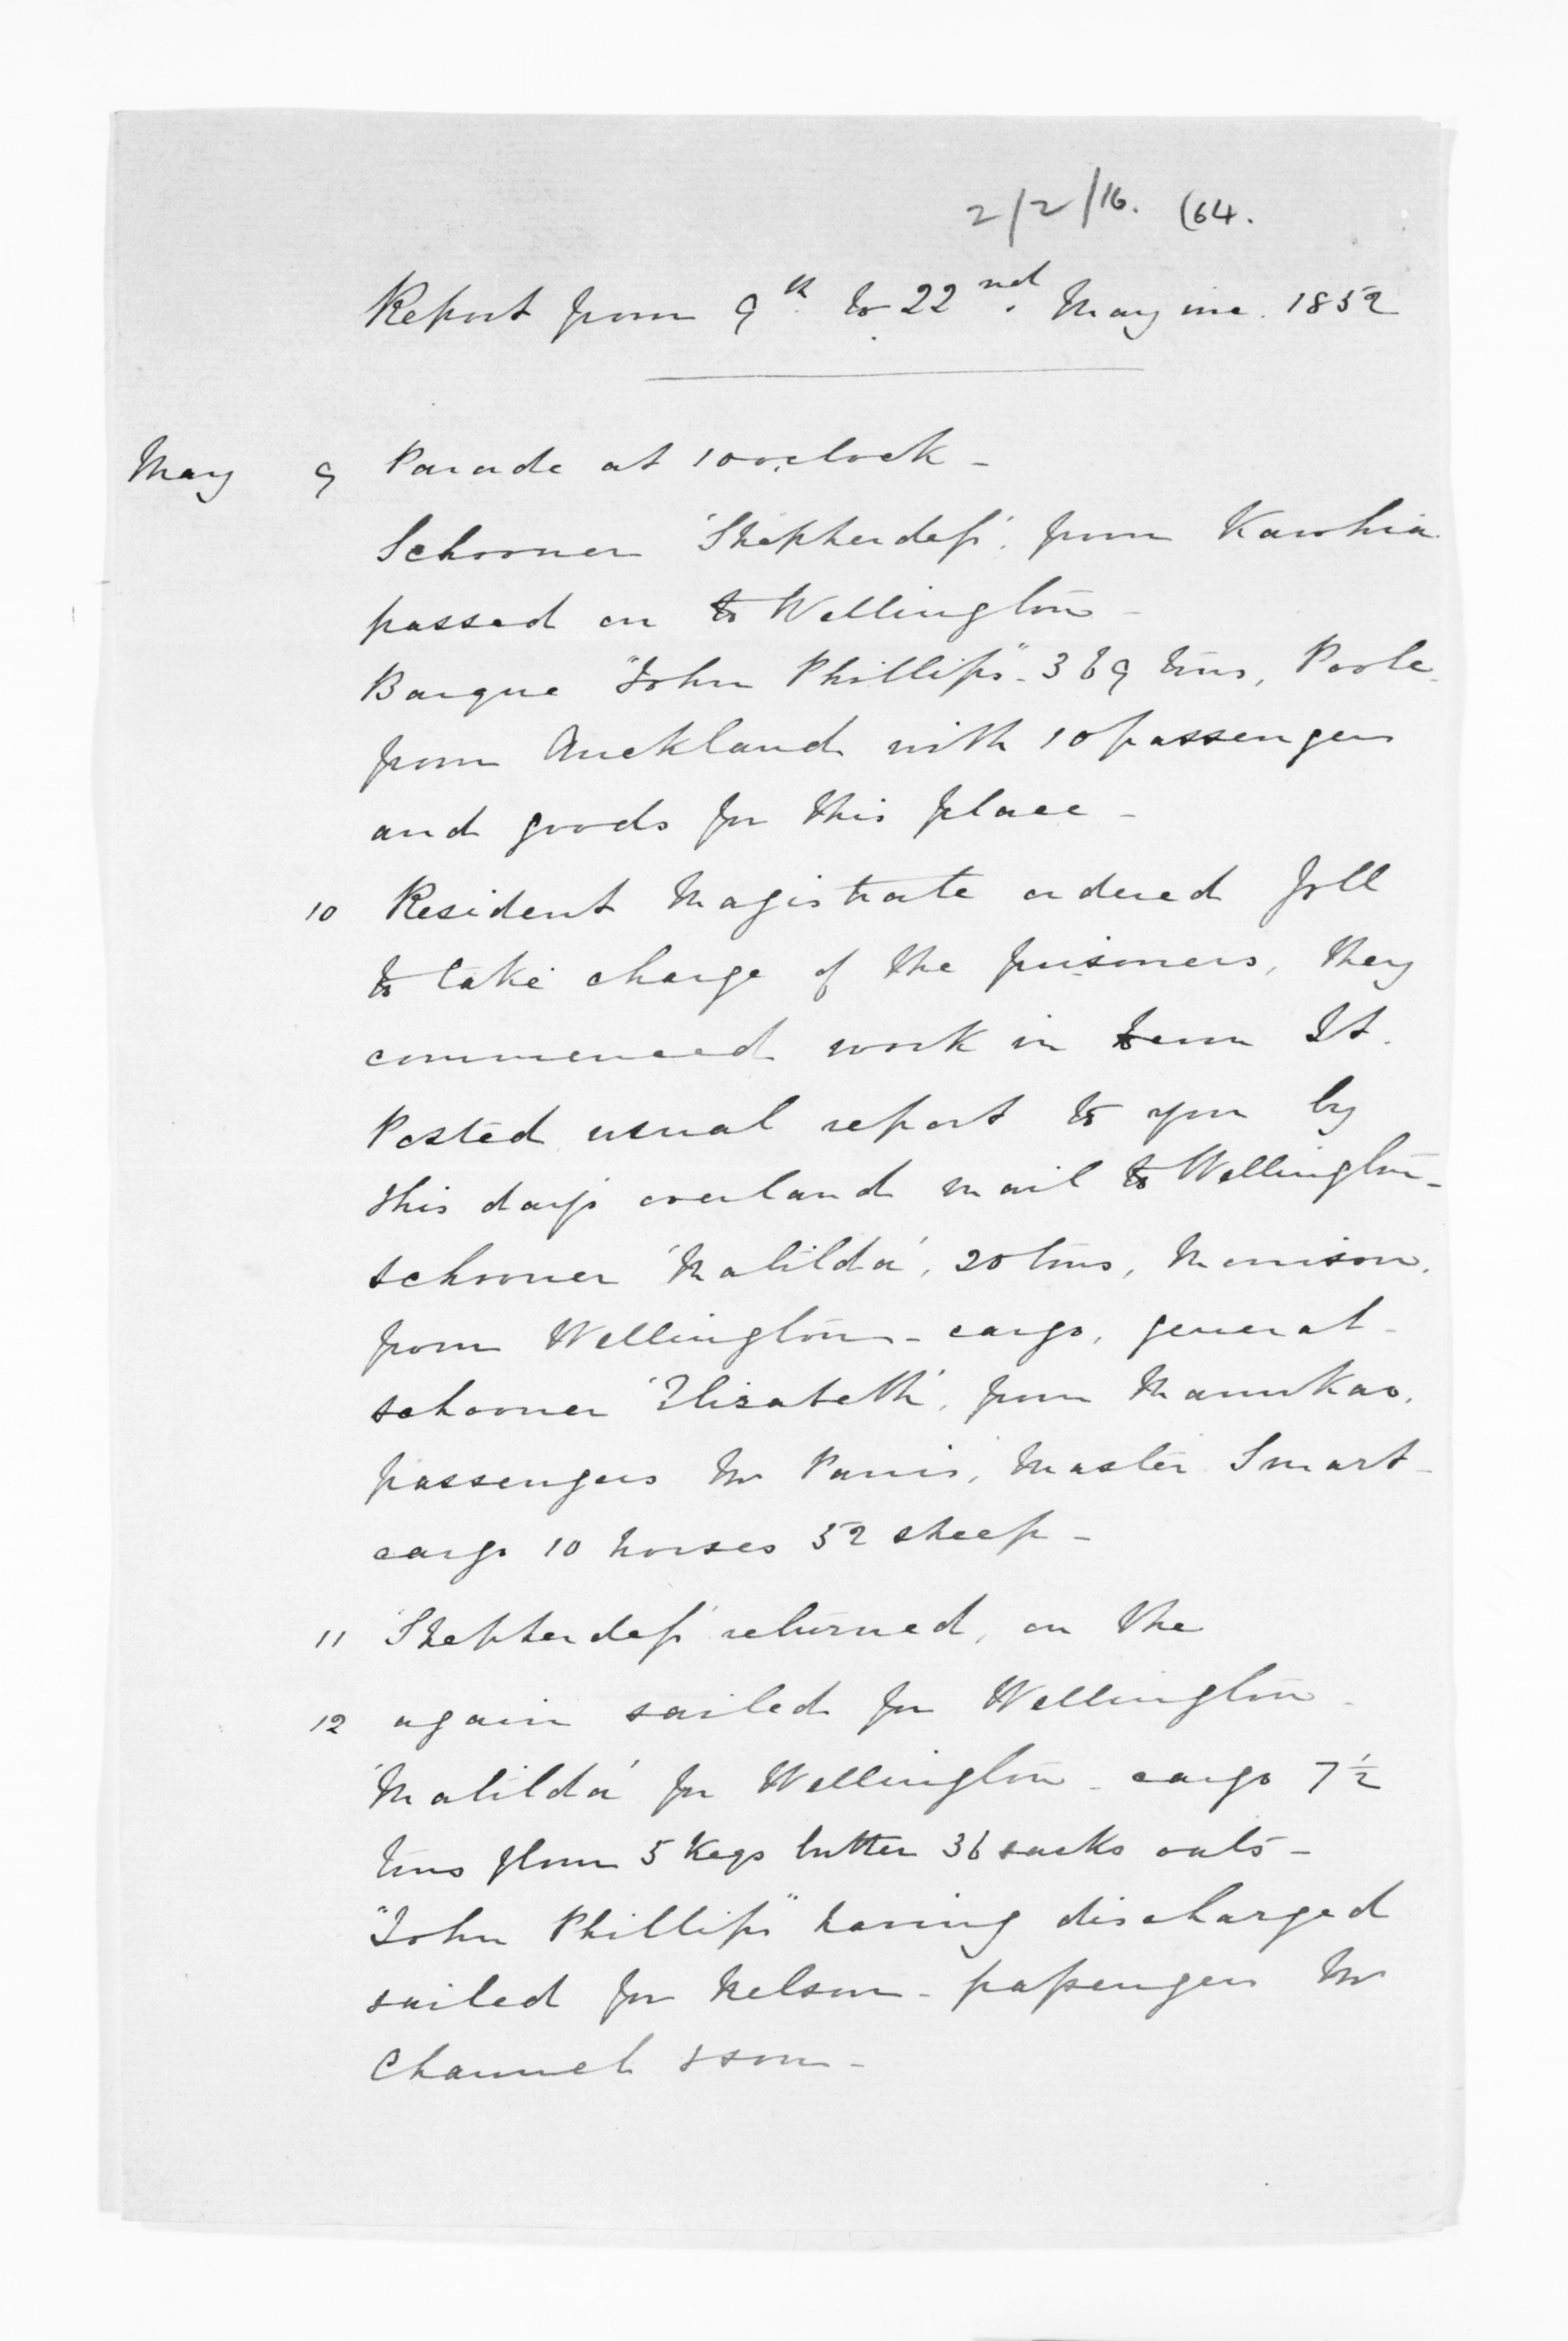 2/2/16. (64.
Report from 9th to 22nd. May inc. 1852
May 9 Parade at 10 o'clock -
Schooner 'Shepherdess', from Kawhia.
passed on to Wellington -
Barque "John Phillips" - 369 tons, Poole.
from Auckland with 10 passengers
and goods for this place -
10 Resident Magistrate ordered Joll
to take charge of the prisoners, they
commenced work in St.
Posted usual report to you by
this day's overland mail to Wellington -
schooner 'Matilda', 20 tons, Morrison.
from Wellington - cargo, general -
schooner 'Elizabeth', from Manukao.
passengers Mr Parris, Master Smart -
cargo 10 horses 52 sheep -
11 'Shepherdess' returned, on the
12 again sailed for Wellington -
'Matilda' for Wellington - cargo 7½
tons flour 5 kegs butter 36 sacks oats -
"John Phillips" having discharged
sailed for Nelson - passengers Mr
Channel & son -